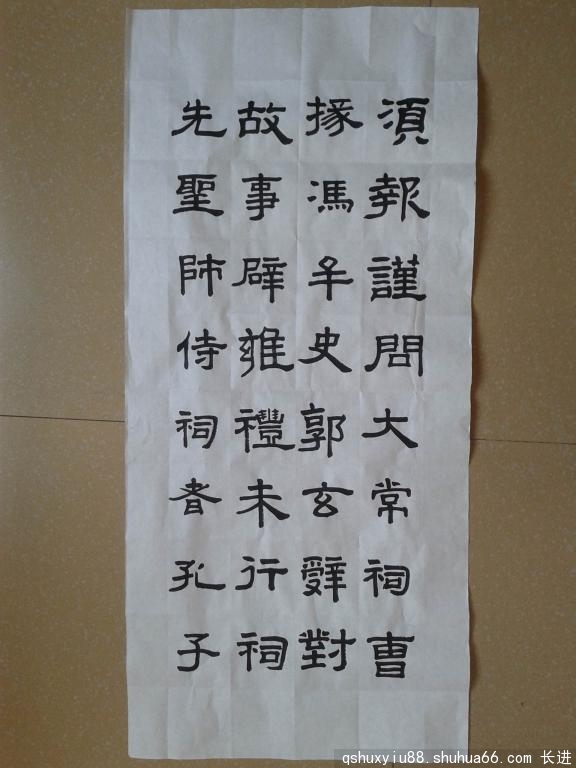 須報謹問大常祠曹
掾馮牟史郭玄辤對
故事辟雍禮未行祠
先聖師侍祠者孔子
qshuxyiu88.shuhua66.com 长进